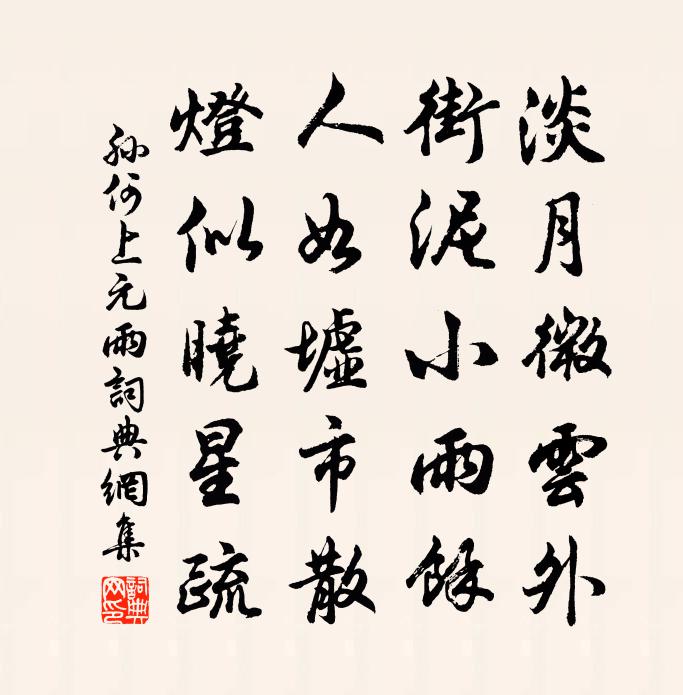 淡月微雲外
街泥小雨餘
人如墟市散
燈似曉星疏
孫何上元雨詞典網集
詞典網印